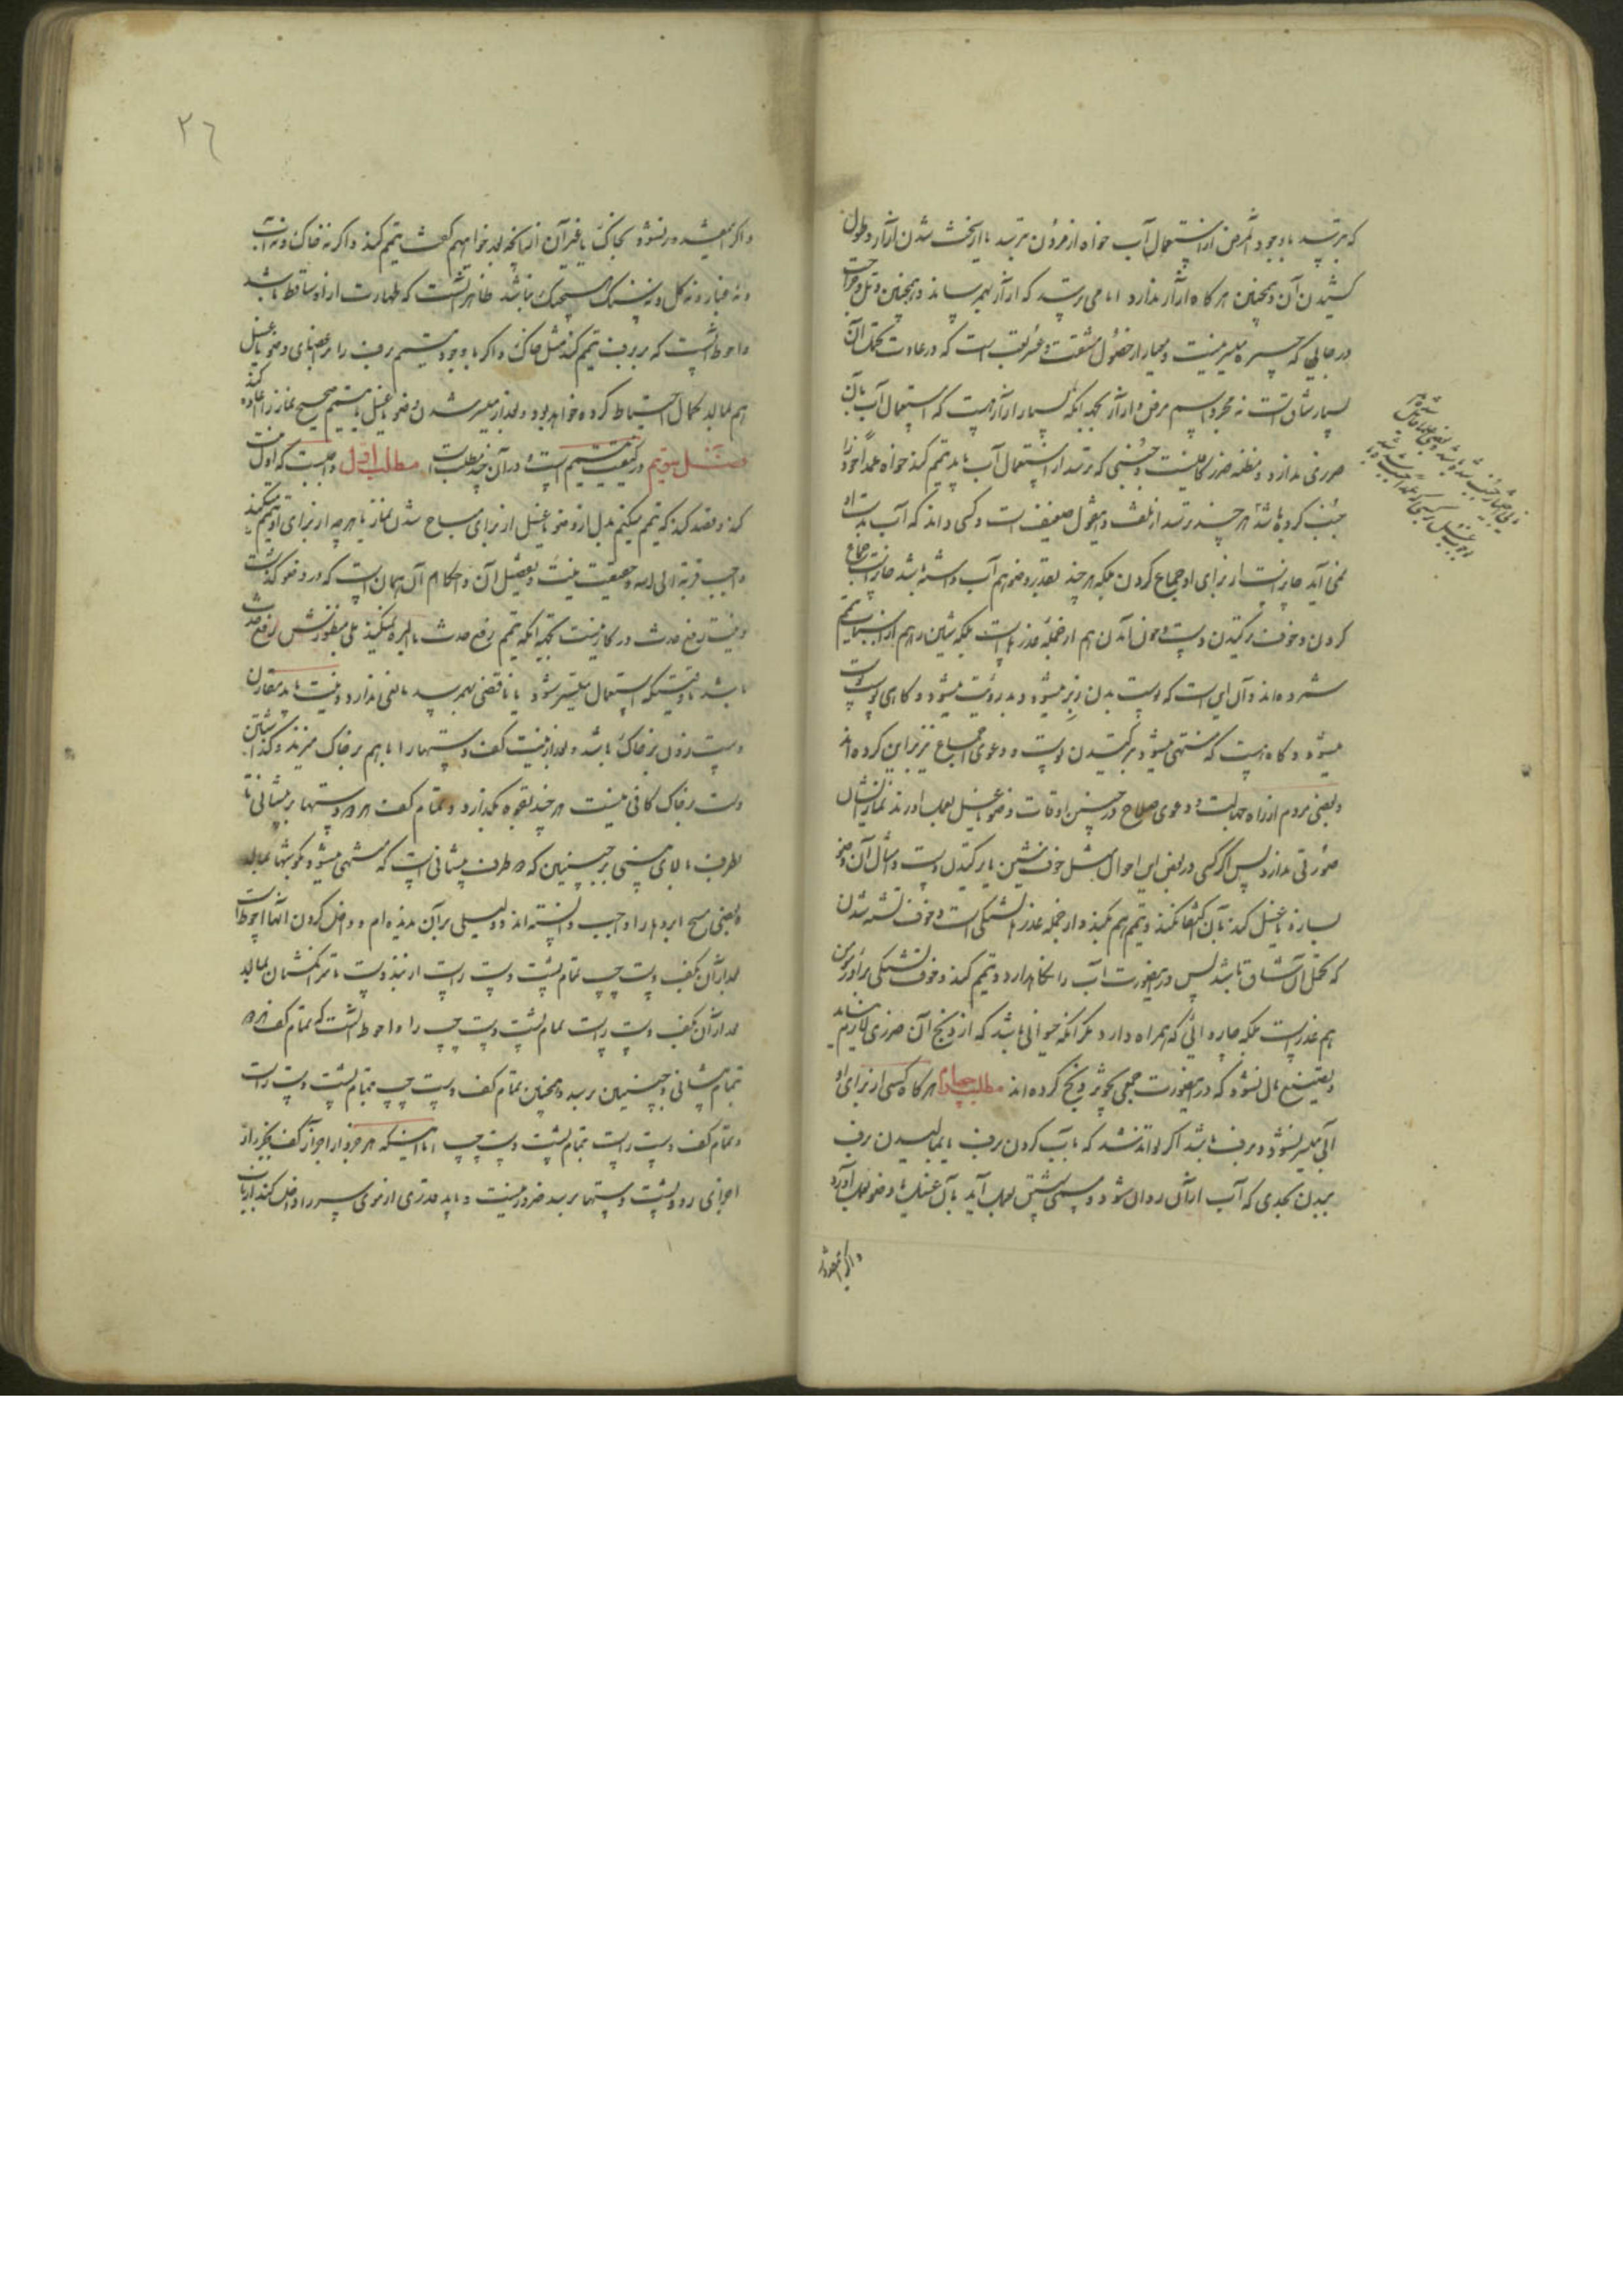 که بترسد با وجود مرض از استعمال آب خواه از مردن بترسد یا از سخت شدن آزار و طول
کشیدن آن و همچنین هر گاه آزار ندارد اما می ترسد که آزار بهم رساند و همچنین
در جایی که جبیره میسر نیست و معیار از حصول مشقت و تعب است که در عادت تحمل آن
بسیار شاق است نه مجرد اسم مرض و آزار بجهه آنکه بسیار آزار هست که استعمال آب بآن
ضرری ندارد و مظنه ضرر کافیست و جنبی که بترسد از استعمال آب باید تیمم کند خواه عمداً خود را
جنب کرده باشد هر چند بترسد از تلف و این قول ضعیف است و کسی داند که آب بدست او
نمی آید جایز است از برای او جماع کردن بلکه هر چند بقدر وضو هم آب داشته باشد جایز است جماع
کردن و خوف ترکیدن دست و خون آمدن هم از جمله عذرهاست بلکه شین را هم از اسباب تیمم
شمرده اند و آن این است که پوست بدن زبر میشود و بد رؤیت میشود و گاهی پوست پوست
میشود و گاه هست که منتهی میشود بترکیدن پوست و دعوی اجماع نیز بر این کرده اند
و بعضی مردم از راه جهالت و دعوی صلاح در چنین اوقات وضو یا غسل بعمل آورند نماز ایشان
صورتی ندارد پس اگر کسی در بعض این احوال مثل خوف شین یا ترکیدن دست و امثال آن وضو
بسازد یا غسل کند بآن اکتفا نکند و تیمم هم بکند و از جمله عذرها تشنگی است و خوف تشنه شدن
که تحمل آن شاق باشد پس در اینصورت آب را نگاهدارد و تیمم کند و خوف تشنگی برادر مؤمن
هم عذر است بلکه چاروائی که همراه دارد مگر آنکه حیوانی باشد که از ذبح آن ضرری لازم نیاید
و تضییع مال نشود که در اینصورت جمعی تجویز ذبح کرده اند مطلب چهارم هر گاه کسی از برای او
آبی میسر نشود و برف باشد اگر تواند شد که بآب کردن برف یا بمالیدن برف
ببدن بحدی که آب از آن روان شود و مسمی شستن بعمل آید بآن غسل یا وضو بعمل آورد
و اگر مقدور
و اگر اینقدر مقدور نشود بخاک یا غیر آن از آنچه بعد خواهیم گفت تیمم کند و اگر نه خاک و نه آب
و نه غبار و نه گل و نه سنگ هیچیک نباشد ظاهر آنست که طهارت از او ساقط باشد
و احوط آنست که بر برف تیمم کند مثل خاک و اگر با وجود تیمم برف را بر اعضای وضو یا غسل
هم بمالد کمال احتیاط کرده خواهد بود و بعد از میسر شدن وضو یا غسل یا تیمم صحیح نماز را اعاده کند
فصل سوم در کیفیت تیمم است و در آن چند مطلب است مطلب اول واجبست که اول نیت
کند و قصد کند که تیمم میکنم بدل از وضو یا غسل از برای مباح شدن نماز یا هر چه از برای او تیمم میکند
واجب قربة الی الله و حقیقت نیت و تفصیل آن و احکام آن همان است که در وضو گذشت
و نیت رفع حدث در کار نیست بجهه آنکه تیمم رفع حدث بالمره نمیکند بلی منظورش رفع حدث
باشد تا وقتیکه استعمال آب میسر شود یا ناقضی بهم رسد مانعی ندارد و نیت باید مقارن
دست زدن بر خاک باشد و بعد از نیت کف دستها را با هم بر خاک میزند و گذاشتن
دست بر خاک کافی نیست هر چند بقوه بگذارد و بتمام کف هر دو دستها بر پیشانی تا
طرف بالای بینی بر جبینین که دو طرف پیشانی است که منتهی میشود بگوشها بمالد
و بعضی مسح ابروها را واجب دانسته اند و دلیلی بر آن ندیده ام و داخل کردن آنها احوط است
بعد از آن بکف دست چپ تمام پشت دست راست از بند دست تا سر انگشتان بمالد
بعد از آن بکف دست راست تمام پشت دست چپ را و احوط آنست که تمام کف هر دو
بتمام پیشانی و جبینین برسد و همچنین تمام کف دست چپ بتمام پشت دست راست
و تمام کف دست راست بتمام پشت دست چپ اما اینکه هر جزو از اجزاء کف بهر جزو از
اجزای رو و پشت دستها برسد ضرور نیست و باید قدری از موی سر را داخل کند از باب
۲٦